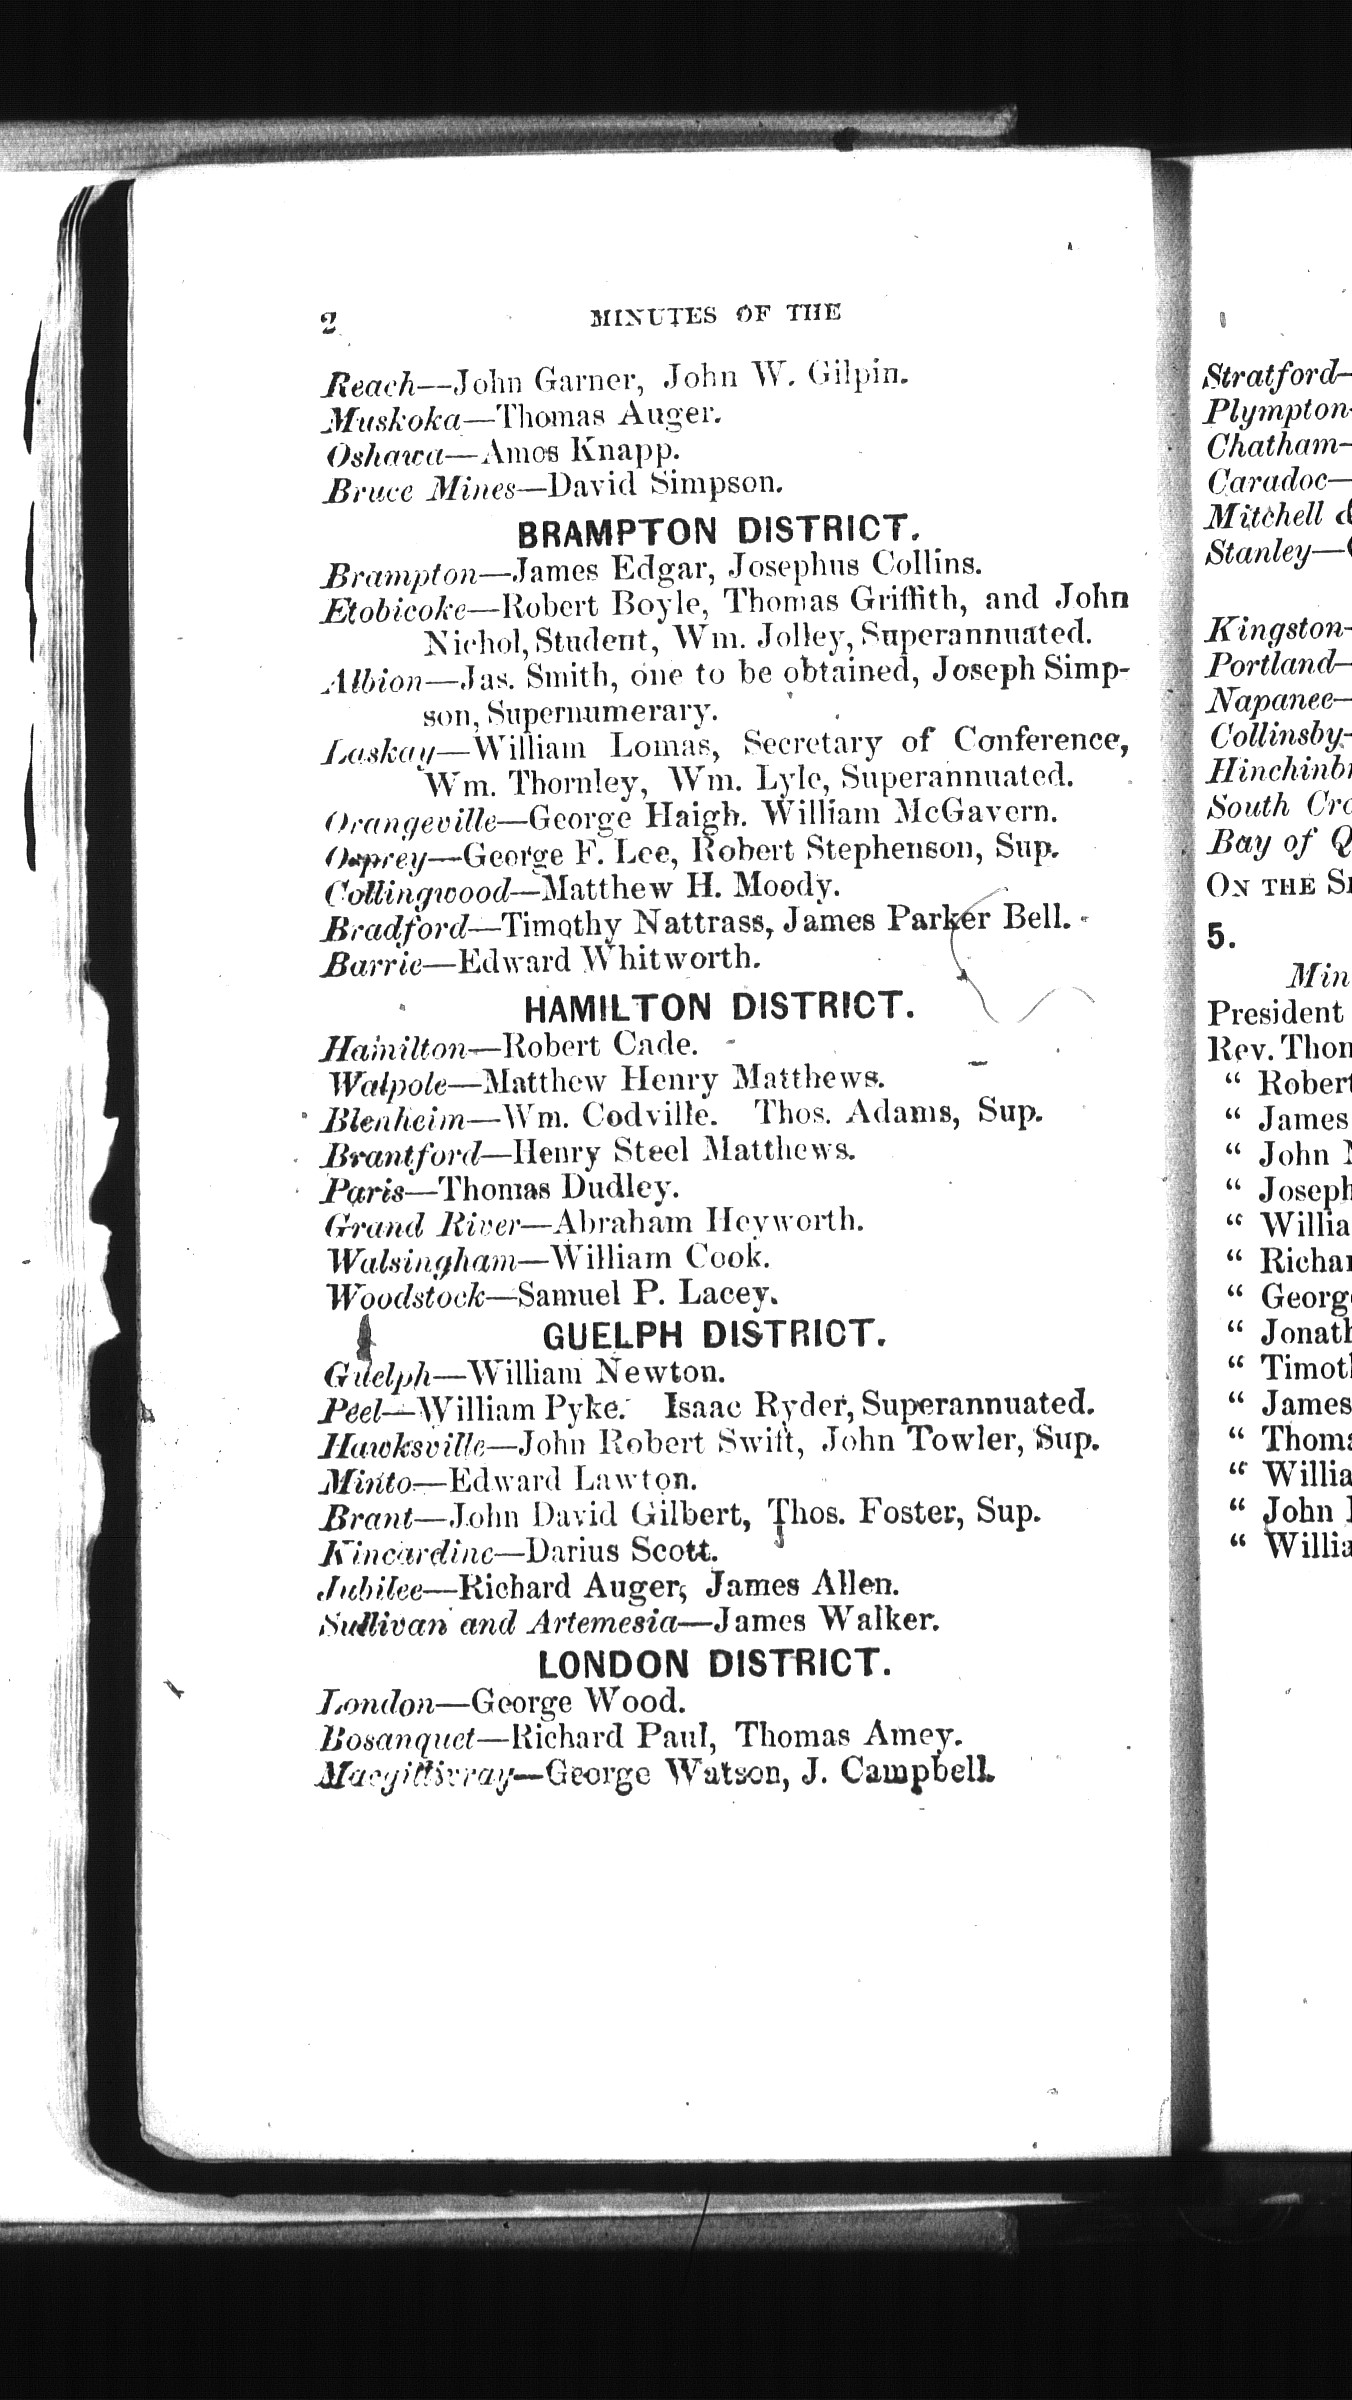 2 MINUTES OF THE
Reach—John Garner, John W. Gilpin.
Muskoka—Thomas Auger.
Oshawa—Amos Knapp.
Bruce Mines—David Simpson.
BRAMPTON DISTRICT.
Brampton—James Edgar, Josephus Collins.
Etobicoke—Robert Boyle, Thomas Griffith, and John
Nichol, Student, Wm. Jolley, Superannuated.
Albion—Jas. Smith, one to be obtained, Joseph Simp-
son, Supernumerary.
Laskay—William Lomas, Secretary of Conference,
Wm. Thornley, Wm. Lyle, Superannuated.
Orangeville—George Haigh. William McGavern.
Osprey—George F. Lee, Robert Stephenson, Sup.
Collingwood—Matthew H. Moody.
Bradford—Timothy Nattrass, James Parker Bell.
Barrie—Edward Whitworth.
HAMILTON DISTRICT.
Hamilton—Robert Cade.
Walpole—Matthew Henry Matthews.
Blenheim—Wm. Codville. Thos. Adams, Sup.
Brantford—Henry Steel Matthews.
Paris—Thomas Dudley.
Grand River—Abraham Heyworth.
Walsingham—William Cook.
Woodstock—Samuel P. Lacey.
GUELPH DISTRICT.
Guelph—William Newton.
Peel—William Pyke. Isaac Ryder, Superannuated.
Hawksville—John Robert Swift, John Towler, Sup.
Minto—Edward Lawton.
Brant—John David Gilbert, Thos. Foster, Sup.
Kincardine—Darius Scott.
Jubilee—Richard Auger, James Allen.
Sullivan and Artemesia—James Walker.
LONDON DISTRICT.
London—George Wood.
Bosanquet—Richard Paul, Thomas Amey.
Macgillivray—George Watson, J. Campbell.
Stratford—
Plympton—
Chatham—
Caradoc—
Mitchell &
Stanley—
Kingston—
Portland—
Napanee—
Collinsby—
South
Bay of Q
ON THE
5.
Min
President
Rev. Thom
" Robert
" James
" John
" Joseph
" Willia
" Richar
" George
" Jonath
" Timoth
" James
" Thoma
" Willia
" John
" Willia